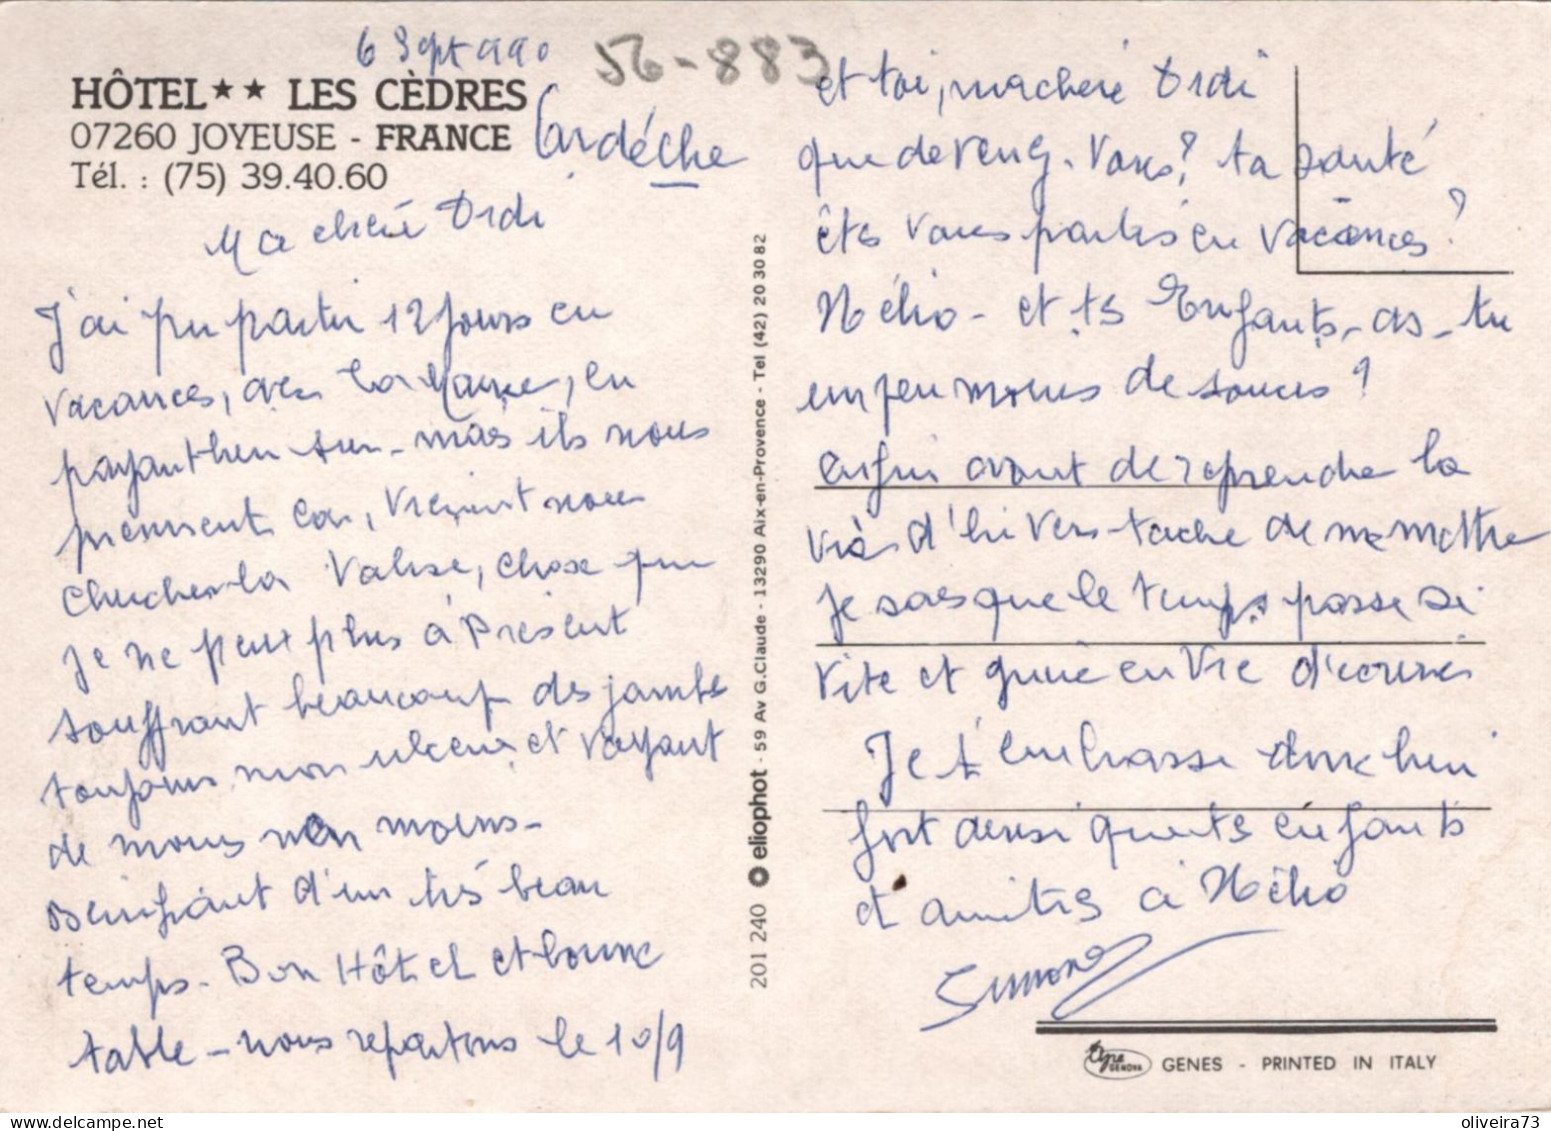 6 Sept 990
56-883
HÔTEL★★ LES CÈDRES
07260 JOYEUSE - FRANCE
Tél. : (75) 39.40.60
(ardéche
Ma cheré Didi
J'ai pu partir 12 jours en
vacances, avec la Mairie, en
payant bien sur - mais ils nous
prennent en car, viennent nous
chercher la valise, chose que
je ne peux plus à présent
souffrant beaucoup des jambes
toujours mon ulcère et voyant
de moins en moins -
Bénificiant d'un trés beau
temps - Bon Hôtel et bonne
table - nous repartons le 10/9
et toi, ma cheré Didi
que devenez-vous? ta santé
êtes vous partis en vacances?
Hélio - et ts Enfants, as-tu
un peu moins de soucis?
enfin avant de reprendre la
vie d'hiver - tache de me mettre
je sais que le temps passe si
vite et qu'on
Je t'embrasse donc bien
fort ainsi que ts enfants
et amitiés à Hélio
Simone
201 240 eliophot - 59 Av G.Claude - 13290 Aix-en-Provence - Tel (42) 20 30 82
GENOVA
GENES - PRINTED IN ITALY
oliveira73